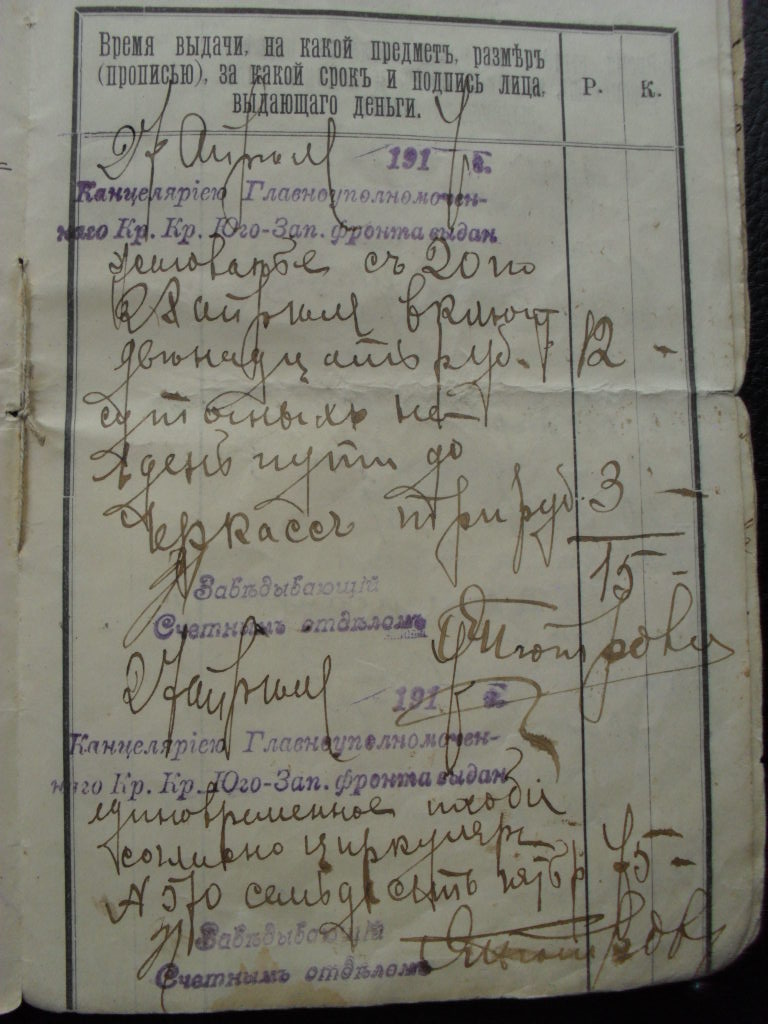 Время выдачи, на какой предметъ, размѣръ
(прописью), за какой срокъ и подпись лица,
выдающаго деньги.
Р. К.
27 Апрѣля 1917 г.
Канцеляріею Главноуполномочен-
наго Кр. Кр. Юго-Зап. фронта выдан
жалованье съ 20 по
28 апрѣля включ
двѣнадцать руб. 12 -
суточныхъ на
1 день пути до
Черкассъ три руб. 3 -
15 -
Завѣдывающій
Счетнымъ отдѣломъ
27 апрѣля 1917 г.
Канцеляріею Главноуполномочен-
наго Кр. Кр. Юго-Зап. фронта выдан
единовременное пособіе
согласно циркуляра
№ 570 семьдесятъ пять р 75 -
Завѣдывающій
Счетнымъ отдѣломъ